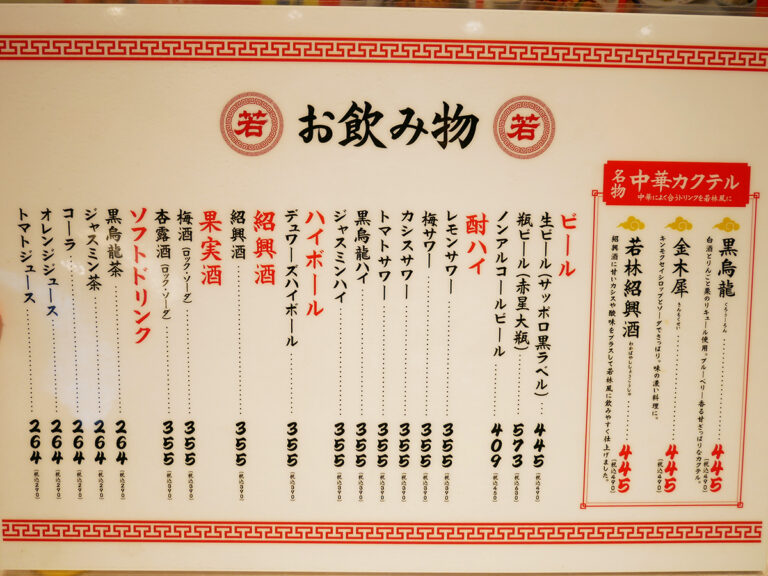 若 お飲み物 若
名物 中華カクテル
中華によく合うドリンクを若林風に
黒烏龍 くろうーろん 445 (税込490)
白酒とりんごと棗のリキュール使用。ブルーベリー香る甘ざっぱりなカクテル。
金木犀 きんもくせい 445 (税込490)
キンモクセイシロップとソーダでさっぱり。味の濃い料理に。
若林紹興酒 わかばやししょうこうしゅ 445 (税込490)
紹興酒に甘いカシスや酸味をプラスして若林風に飲みやすく仕上げました。
ビール
生ビール(サッポロ黒ラベル) 445 (税込490)
瓶ビール(赤星大瓶) 573 (税込630)
ノンアルコールビール 409 (税込450)
酎ハイ
レモンサワー 355 (税込390)
梅サワー 355 (税込390)
カシスサワー 355 (税込390)
トマトサワー 355 (税込390)
黒烏龍ハイ 355 (税込390)
ジャスミンハイ 355 (税込390)
ハイボール
デュワーズハイボール 355 (税込390)
紹興酒
紹興酒 355 (税込390)
果実酒
梅酒(ロック・ソーダ) 355 (税込390)
杏露酒(ロック・ソーダ) 355 (税込390)
ソフトドリンク
黒烏龍茶 264 (税込290)
ジャスミン茶 264 (税込290)
コーラ 264 (税込290)
オレンジジュース 264 (税込290)
トマトジュース 264 (税込290)